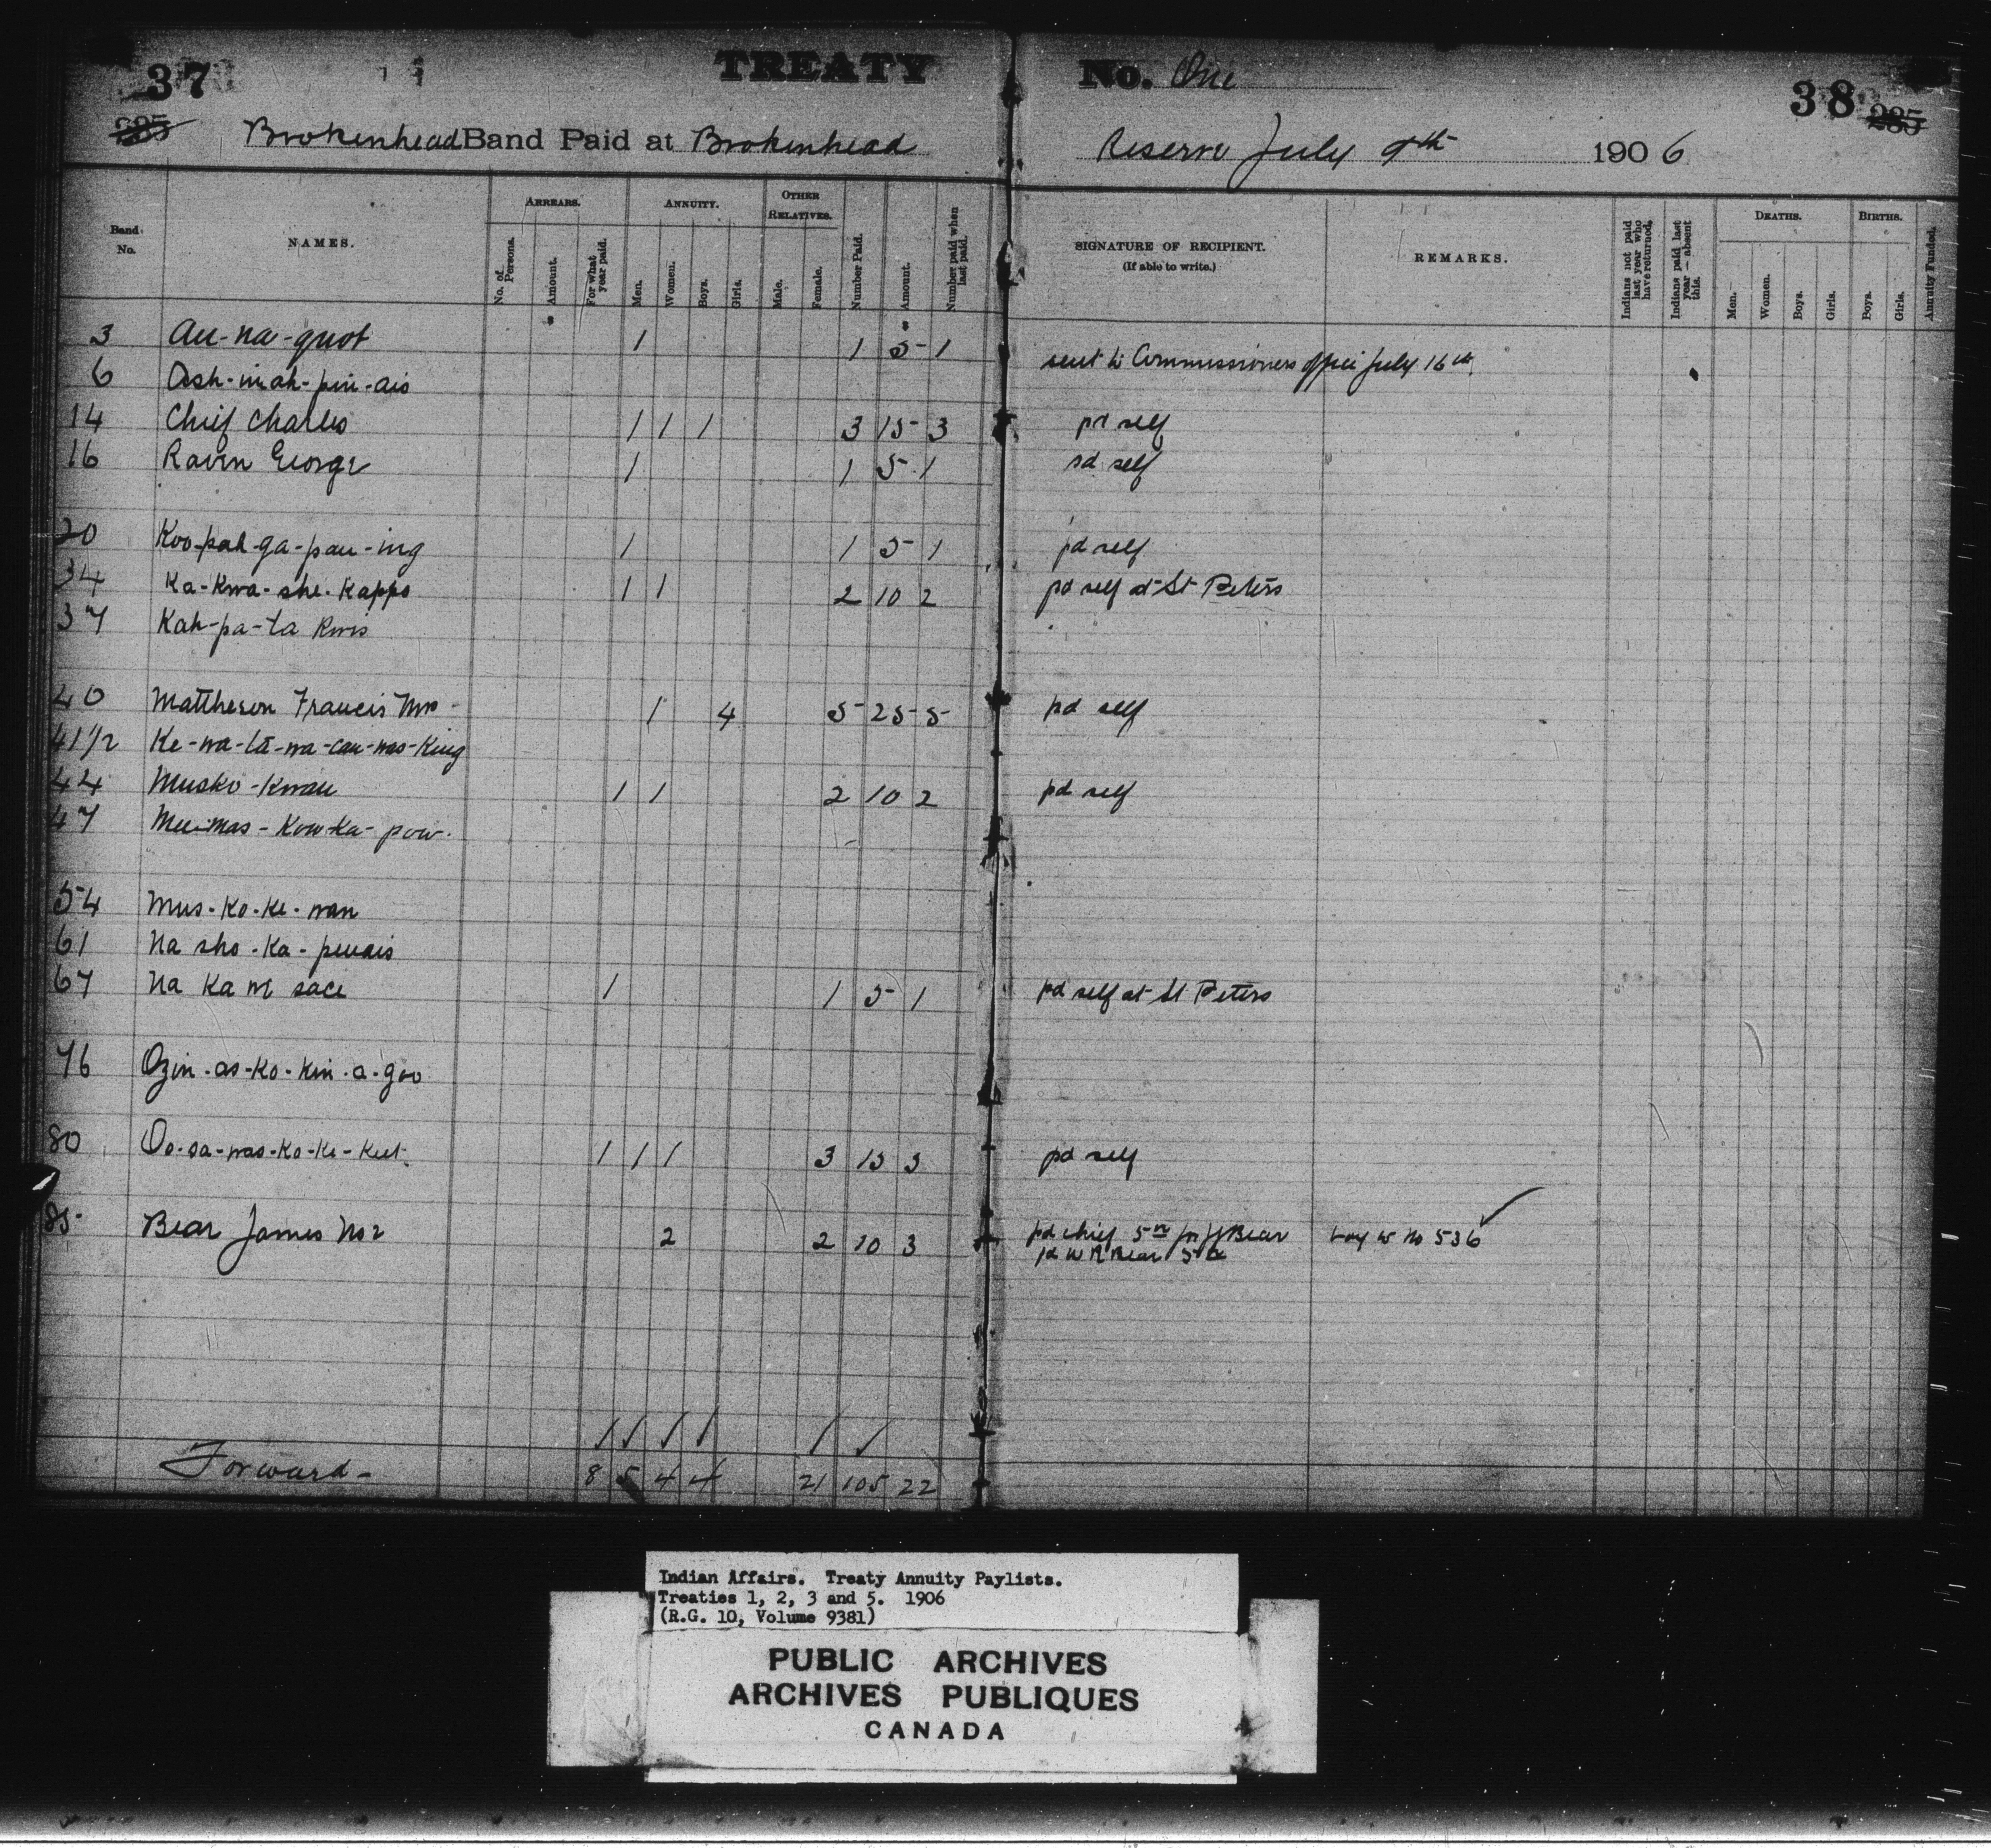 37 TREATY No. One 38
285 Brokenhead Band Paid at Brokenhead Reserve July 9th 1906 285
Band No. NAMES. ARREARS. No. of Persons. Amount. For what year paid. ANNUITY. Men. Women. Boys. Girls. OTHER RELATIVES. Male. Female. Number Paid. Amount. Number paid when last paid. SIGNATURE OF RECIPIENT. (If able to write.) REMARKS. Indians not paid last year who have returned. Indians paid last year — absent this. DEATHS. Men. Women. Boys. Girls. BIRTHS. Boys. Girls. Annuity Funded.
3 Au-na-quot 1 1 5- 1 sent to Commissioners office July 16th
6 Ash-inah-pin-ais
14 Chief Charles 1 1 1 3 15- 3 pd self
16 Raven George 1 1 5 1 pd self
20 Koo-pah-ga-pau-ing 1 1 5- 1 pd self
34 Ka-Kwa-she-Kappo 1 1 2 10 2 pd self at St Peters
37 Kah-pa-ta
40 Mattheson Francis Mrs 1 4 5- 25- 5- pd self
41 1/2 Ke-wa-ta-wa-cau-was-King
44 Musko-Kwau 1 1 2 10 2 pd self
47 -mas-Kow-Ka-pow.
54 Mus-Ko-Ke-wan
61 Na sho-Ka-penais
67 Na Ka we sace 1 1 5- 1 pd self at St Peters
76 Ozin-as-Ko-Kin-a-goo
80 Oo-sa-was-Ko-Ke-Kut 1 1 1 3 15 3 pd self
85- Bear James No 2 2 2 10 3 pd chief 5.00 for J Bear Boy w No 536
pd W R Bear 5.00
Forward- 8 5 4 4 21 105 22
Indian Affairs. Treaty Annuity Paylists.
Treaties 1, 2, 3 and 5. 1906
(R.G. 10, Volume 9381)
PUBLIC ARCHIVES
ARCHIVES PUBLIQUES
CANADA